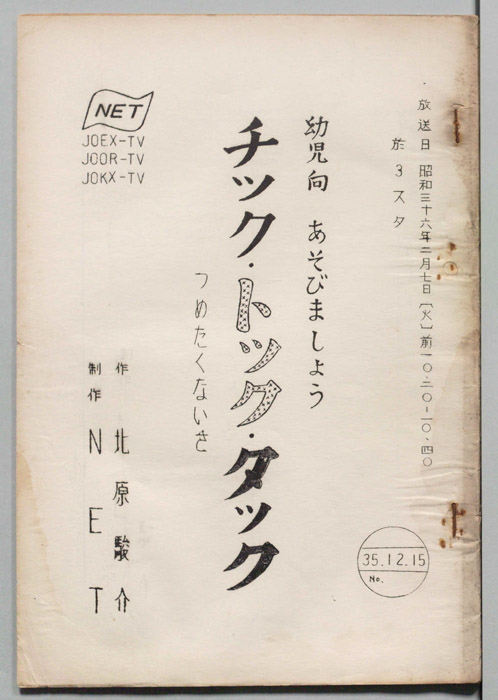 放送日 昭和三十六年二月七日〔火〕前一〇・二〇-一〇、四〇
於 3スタ
幼児向 あそびましょう
チック・トック・タック
つめたくないさ
作 北原駿介
制作 NET
NET
JOEX-TV
JOOR-TV
JOKX-TV
35.12.15
No.